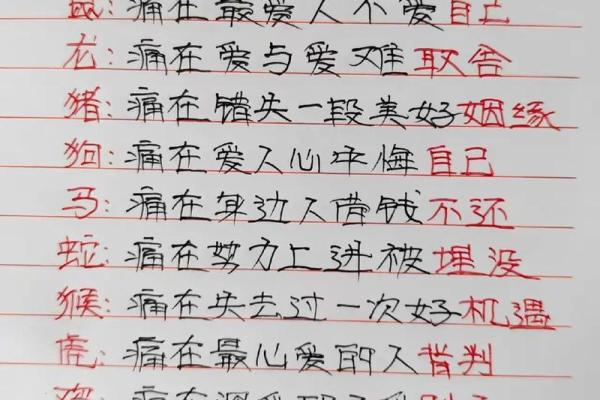 鼠: 痛在最爱人不爱自己
龙: 痛在爱与爱难取舍
猪: 痛在错失一段美好姻缘
狗: 痛在爱人心平悔自己
马: 痛在身边人借钱不还
蛇: 痛在努力上进被埋没
猴: 痛在失去过一次好机遇
虎: 痛在最心爱的人背判
痛在